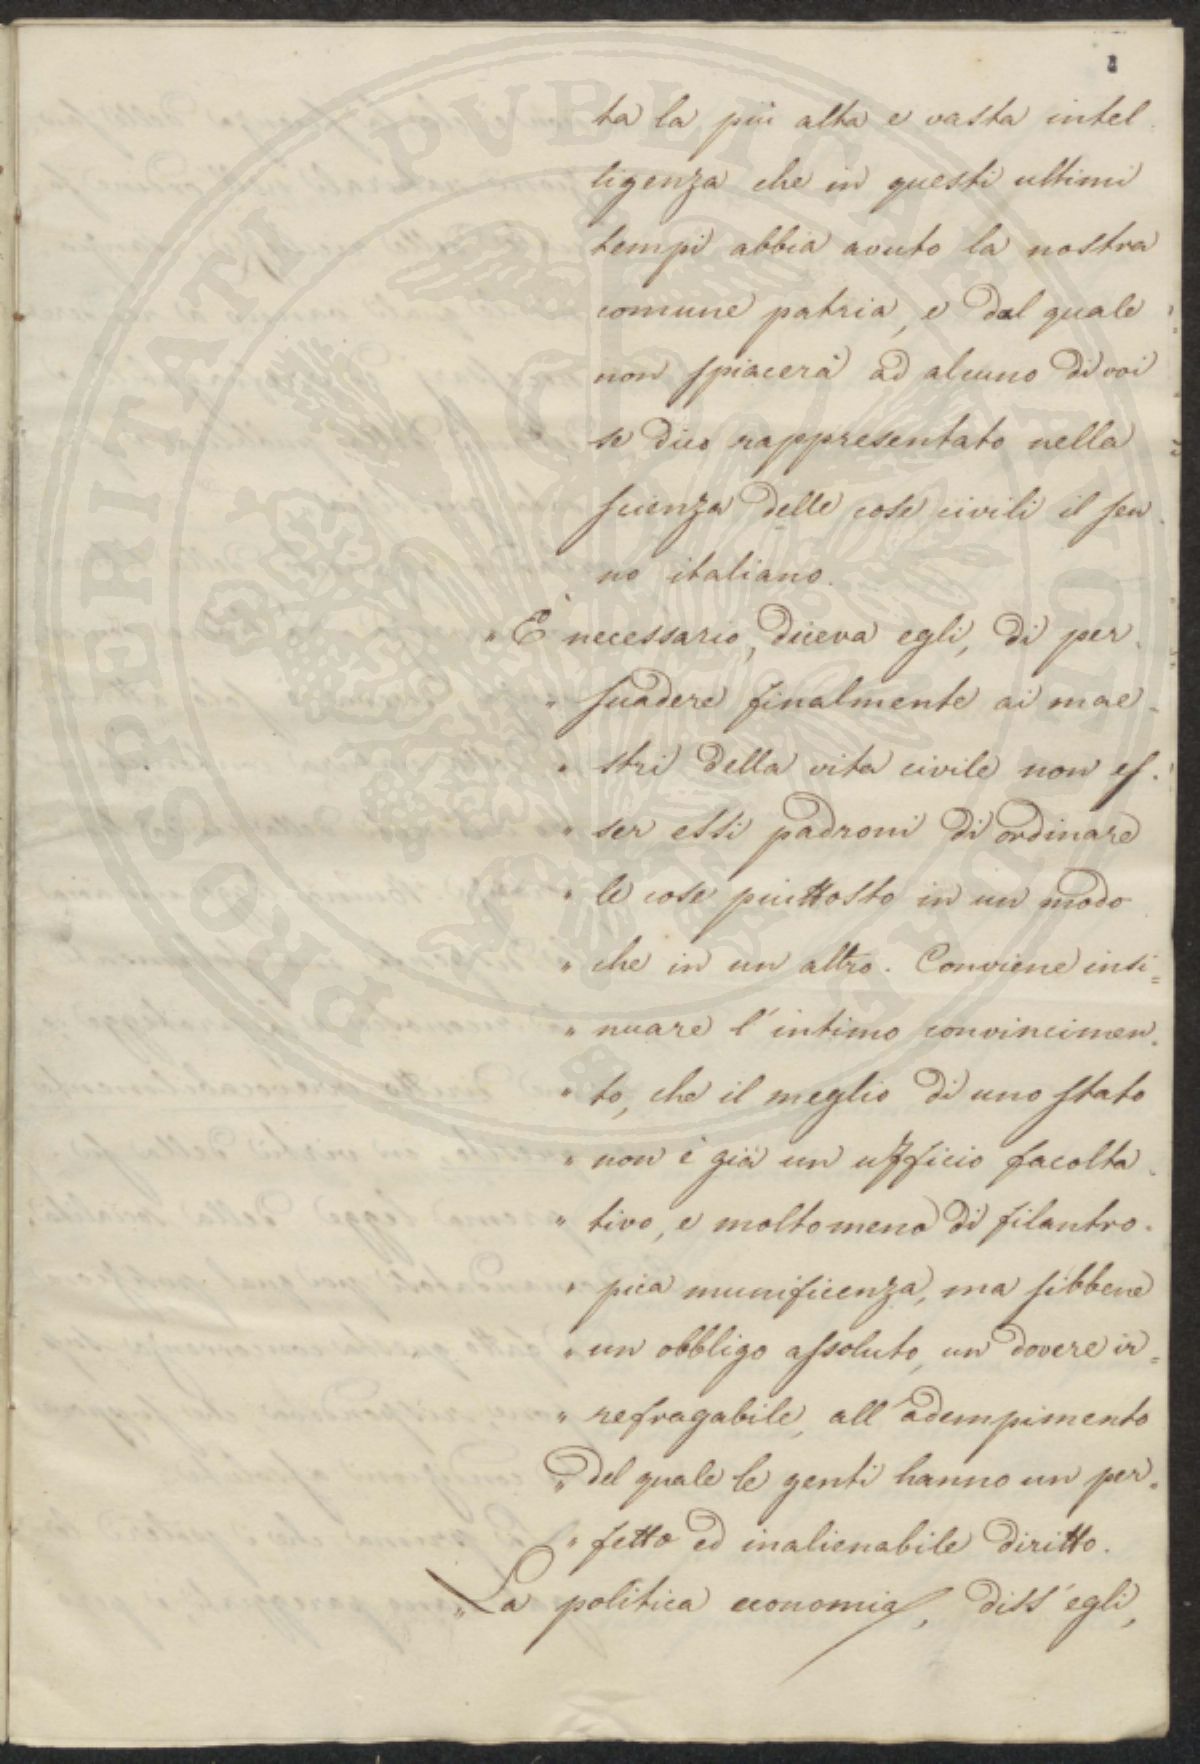 ta la più alta e vasta intel-
ligenza che in questi ultimi
tempi abbia avuto la nostra
comune patria, e dal quale
non spiacerà ad alcuno di voi
se dico rappresentato nella
scienza delle cose civili il sen-
no italiano.
„ È necessario, diceva egli, di per-
„ suadere finalmente ai mae-
„ stri della vita civile non es-
„ ser essi padroni di ordinare
„ le cose piuttosto in un modo
„ che in un altro. Conviene insi=
„ nuare l'intimo convincimen-
„ to, che il meglio di uno stato
„ non è già un ufficio facolta-
„ tivo, e molto meno di filantro-
„ pica munificenza, ma sibbene
„ un obbligo assoluto, un dovere ir=
„ refragabile, all'adempimento
„ del quale le genti hanno un per-
„ fetto ed inalienabile diritto.
„ La politica economia, diss'egli,
PROSPERITATI PVBLICAE AVGENDAE